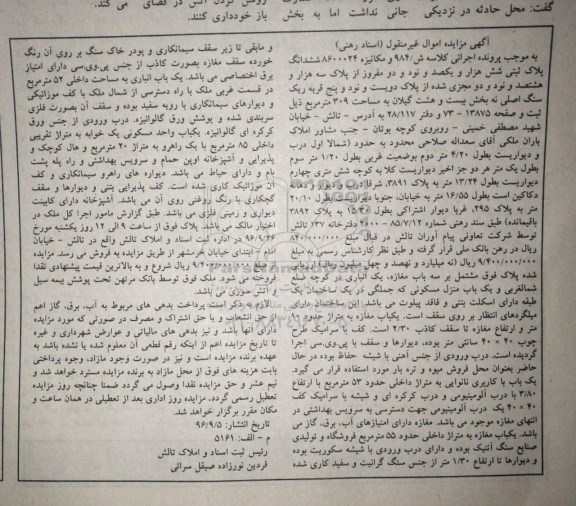 گفت: محل حادثه در نزدیکی
جانی نداشت اما به بخش
باز خودداری کنند.
آگهی مزایده اموال غیرمنقول (اسناد رهنی)
به موجب پرونده اجرائی کلاسه ش/۹۸۴ و مکانیزه ۸۶۰۰۰۲۴ ششدانگ
پلاک ثبتی شش هزار و یکصد و نود و دو مفروز از پلاک سه هزار و
هشتصد و نود و دو مجزی شده از پلاک دویست و نود و پنج قریه ریک
سنگ اصلی نه بخش بیست و هشت گیلان به مساحت ۳۰۹ مترمربع ذیل
ثبت و صفحه ۱۳۸۷۵ – ۷۳ و دفتر ۲۸/۱۱۷ به آدرس – تالش – خیابان
شهید مصطفی خمینی – روبروی کوچه بوتان – جنب مشاور املاک
باران ملکی آقای سعداله صلاحی محدود به حدود (شمالا اول درب
و دیواریست بطول ۴/۲۰ متر دوم بوضعیت غربی بطول ۱/۲۰ متر سوم
بطول یک متر هر دو جزء اخیر دیواریست کلا به کوچه شش متری چهارم
دیواریست بطول ۱۳/۲۴ متر به پلاک ۳۸۹۱، شرقا درب و دیوار و دهانه
دکاکین است بطول ۱۶/۵۵ متر به خیابان، جنوبا دیواریست بطول ۲۰/۱۰
متر به پلاک ۲۹۵، غربا دیوار اشتراکی بطول ۱۵/۳۰ به پلاک ۳۸۹۲
باقیمانده) طبق سند رهنی شماره ۸۵/۷/۱۲ – ۲۰۰۰ دفترخانه ۱۳۷ تالش
توسط شرکت تعاونی پیام آوران تالش در قبال مبلغ ۸۴۰/۰۰۰/۰۰۰
ریال در رهن بانک ملی قرار گرفته و طبق نظر کارشناس رسمی به مبلغ
۹/۴۰۰/۰۰۰/۰۰۰ ریال (نه میلیارد و چهارصد میلیون ریال) ارزیابی
شده پلاک فوق مشتمل بر سه باب مغازه، یک انباری در کوچه ضلع
شمالغربی و یک باب منزل مسکونی که جملگی در یک ساختمان یک
طبقه دارای اسکلت بتنی و فاقد پیلوت می باشد این ساختمان دارای
میلگردهای انتظار بر روی سقف است. یکباب مغازه به متراژ حدود ۱۰
متر و ارتفاع مغازه تا سقف کاذب ۲/۳۰ است. کف با سرامیک طرح
چوب ۴۰ × ۴۰ سانتی متر بوده، دیوارها و سقف با پی.وی.سی اجرا
گردیده است. درب ورودی از جنس آهنی با شیشه حفاظ بوده در حال
حاضر بعنوان محل فروش میوه و تره بار مورد استفاده قرار می گیرد.
یک باب با کاربری نانوایی به متراژ داخلی حدود ۵۳ مترمربع با ارتفاع
۳/۸۰ با درب آلومینیومی و درب کرکره ای و شیشه با سرامیک کف
۴۰ × ۴۰ یک درب آلومینیومی جهت دسترسی به سرویس بهداشتی در
انتهای مغازه موجود می باشد. مغازه دارای امتیازهای آب، برق، گاز می
باشد. یکباب مغازه به متراژ داخلی حدود ۵۵ مترمربع فروشگاه و تولیدی
صنایع سنگ آنتیک بوده و دارای درب ورودی با شیشه سکوریت بوده
و دیوارها تا ارتفاع ۱/۳۰ متر از جنس سنگ گرانیت و سفید کاری شده
و مابقی تا زیر سقف سیمانکاری و پودر خاک سنگ بر روی آن رنگ
خورده سقف مغازه بصورت کاذب از جنس پی.وی.سی دارای امتیاز
برق اختصاصی می باشد. یک باب انباری به مساحت داخلی ۵۲ مترمربع
در قسمت غربی ملک با راه دسترسی از شمال ملک با کف موزائیکی
و دیوارهای سیمانکاری با رویه سفید بوده و سقف آن بصورت فلزی
سربندی شده و پوشش ورق گالوانیزه. درب ورودی از جنس ورق
کرکره ای گالوانیزه. یکباب واحد مسکونی یک خوابه به متراژ تقریبی
داخلی ۸۵ مترمربع با یک راهرو به متراژ ۲۰ مترمربع و هال کوچک و
پذیرایی و آشپزخانه اوپن حمام و سرویس بهداشتی و راه پله پشت
بام و دارای حیاط می باشد. دیواره های راهرو سیمانکاری و کف
آن موزائیک کاری شده است. کف پذیرایی بتنی و دیوارها و سقف
گچکاری با رنگ روغنی روی آن می باشد. آشپزخانه دارای کابینت
دیواری و زمینی فلزی می باشد. طبق گزارش مامور اجرا کل ملک در
اختیار مالک می باشد. پلاک فوق از ساعت ۹ الی ۱۲ روز یکشنبه مورخ
۹۶/۹/۲۶ در اداره ثبت اسناد و املاک تالش واقع در تالش – خیابان
امام – ابتدای خیابان خرمشهر از طریق مزایده به فروش می رسد. مزایده
از مبلغ ۹/۴۰۰/۰۰۰/۰۰۰ ریال شروع و به بالاترین قیمت پیشنهادی نقدا
فروخته می شود. ملک فوق توسط بانک مرتهن تحت پوشش بیمه سیل
و آتش سوزی می باشد.
لازم به ذکر است پرداخت بدهی های مربوط به آب، برق، گاز اعم
از حق انشعاب و یا حق اشتراک و مصرف در صورتی که مورد مزایده
دارای آنها باشد و نیز بدهی های مالیاتی و عوارض شهرداری و غیره
تا تاریخ مزایده اعم از اینکه رقم قطعی آن معلوم شده یا نشده باشد به
عهده برنده مزایده است و نیز در صورت وجود مازاد، وجوه پرداختی
بابت هزینه های فوق از محل مازاد به برنده مزایده مسترد خواهد شد و
نیم عشر و حق مزایده نقدا وصول می گردد ضمنا چنانچه روز مزایده
تعطیل رسمی گردد، مزایده روز اداری بعد از تعطیلی در همان ساعت و
مکان مقرر برگزار خواهد شد.
تاریخ انتشار: ۹۶/۹/۵
م – الف: ۵۱۶۱
رئیس ثبت اسناد و املاک تالش
فردین نورزاده صیقل سرائی